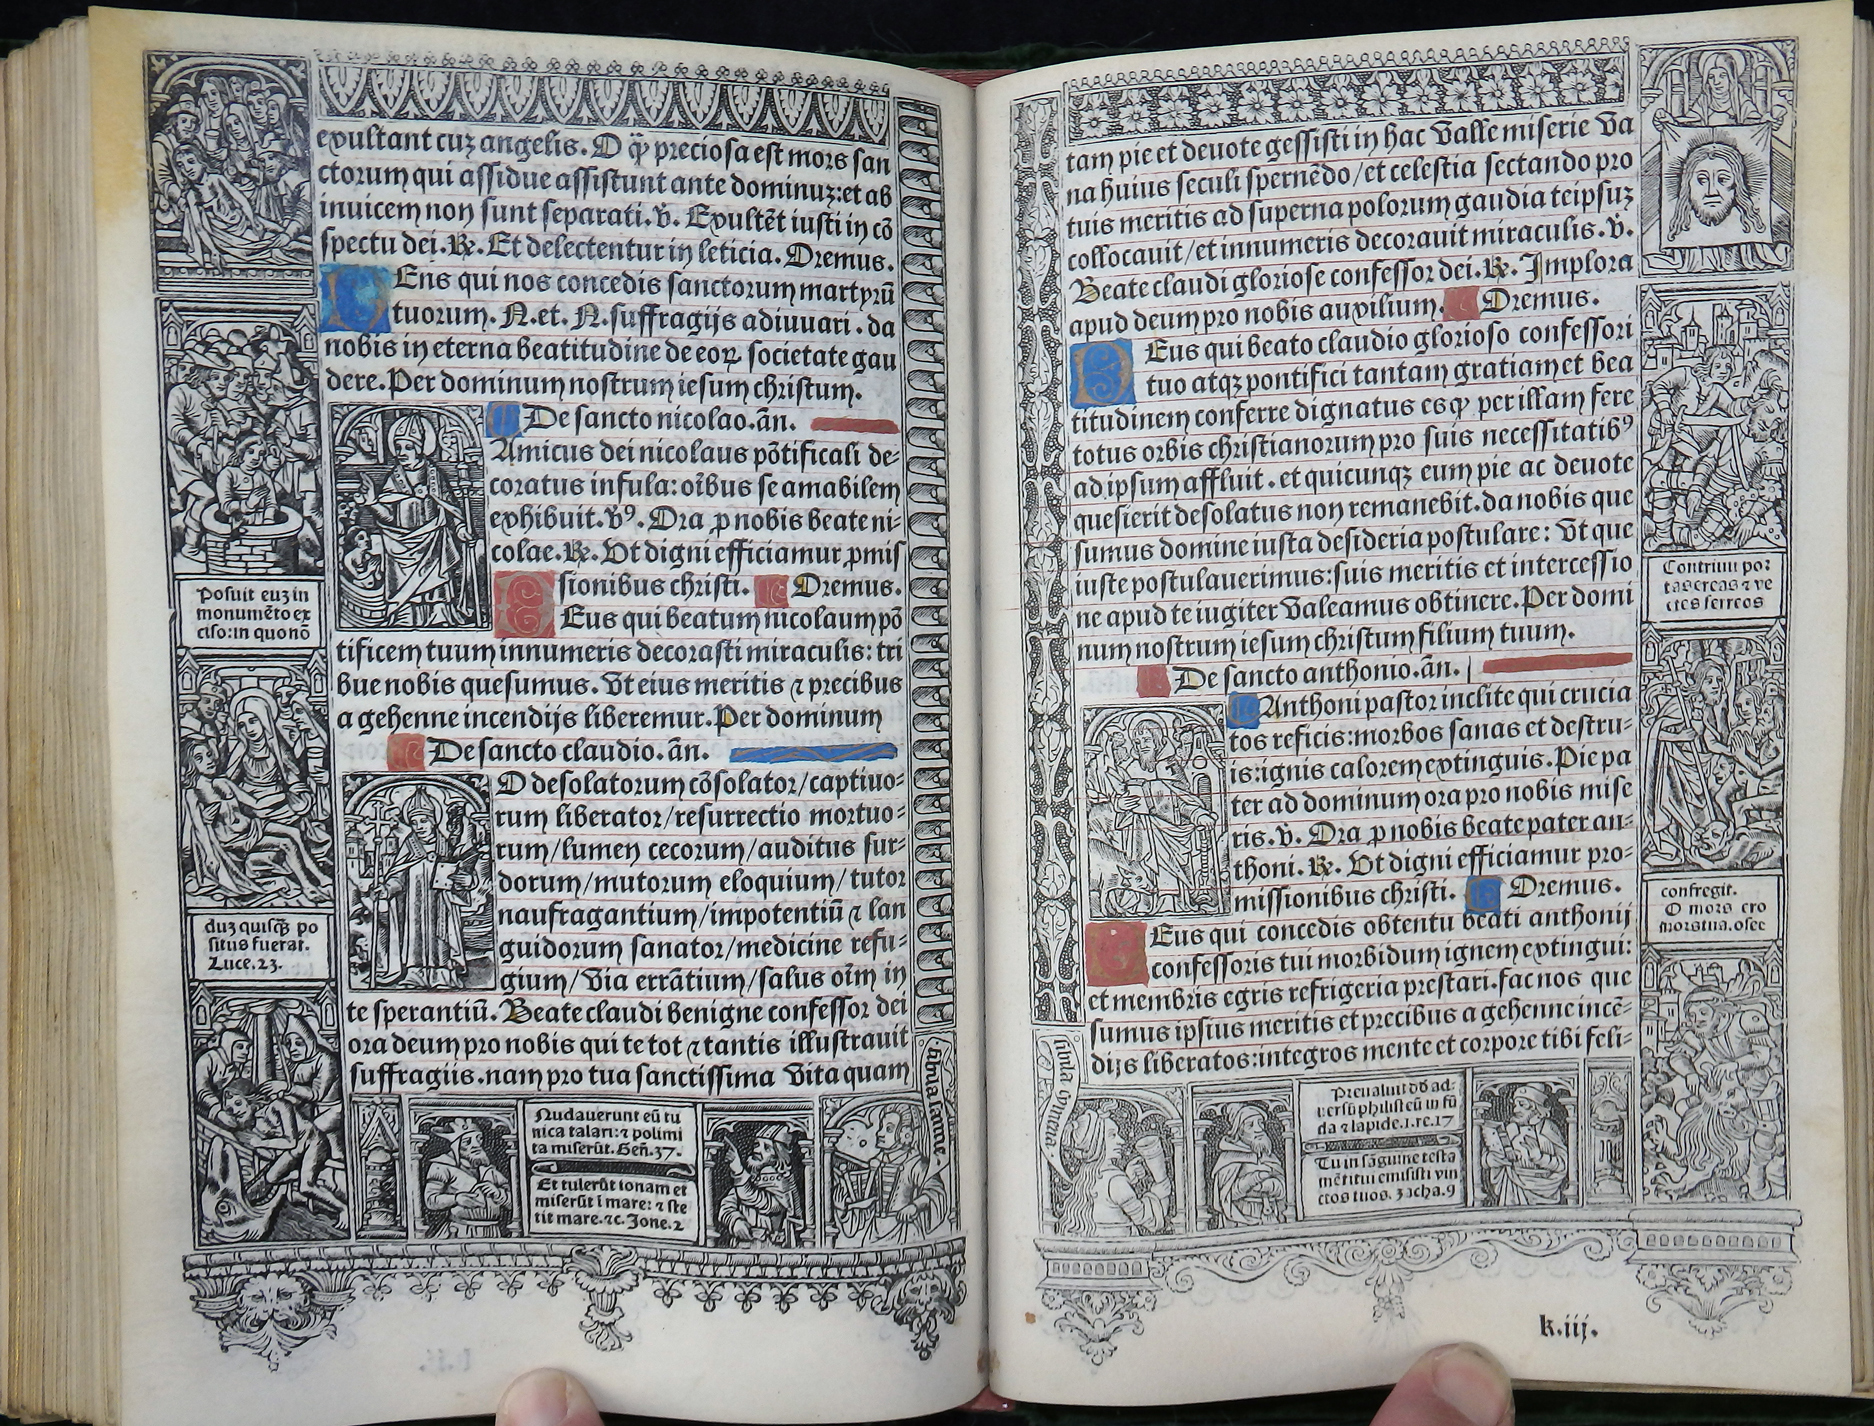 exultant cuȝ angelis. O q̄ȝ preciosa est mors san
ctorum qui assidue assistunt ante dominuȝ: et ab
inuicem non sunt separati. v̄. Exultēt iusti in cō
spectu dei. ℟. Et delectentur in leticia. Oremus.
Eus qui nos concedis sanctorum martyrū
tuorum. N. et. N. suffragijs adiuuari. da
nobis in eterna beatitudine de eoꝝ societate gau
dere. Per dominum nostrum iesum christum.
De sancto nicolao. añ.
Amicus dei nicolaus pōtificali de⸗
coratus infula: oībus se amabilem
exhibuit. v̄ꝰ. Ora ꝓ nobis beate ni⸗
colae. ℟. Vt digni efficiamur ꝓmis
sionibus christi. Oremus.
Eus qui beatum nicolaum pō
tificem tuum innumeris decorasti miraculis: tri
bue nobis quesumus. Vt eius meritis ⁊ precibus
a gehenne incendijs liberemur. Per dominum
De sancto claudio. añ.
O desolatorum cōsolator/captiuo⸗
rum liberator/resurrectio mortuo⸗
rum/lumen cecorum/auditus sur⸗
dorum/mutorum eloquium/tutor
naufragantium/impotentiū ⁊ lan
guidorum sanator/medicine refu⸗
gium/via errātium/salus oīm in
te sperantiū. Beate claudi benigne confessor dei
ora deum pro nobis qui te tot ⁊ tantis illustrauit
suffragiis. nam pro tua sanctissima vita quam
Posuit euȝ in
monumēto ex
ciso: in quo nō
duȝ quisq̄ȝ po
situs fuerat.
Luce. 23.
Nudauerunt eū tu
nica talari: ⁊ polimi
ta miserūt. Geñ. 37.
Et tulerūt ionam et
miserūt ī mare: ⁊ ste
tit mare. ⁊c. Jone. 2
tam pie et deuote gessisti in hac valle miserie va
na huius seculi spernēdo/et celestia sectando pro
tuis meritis ad superna polorum gaudia teipsuȝ
collocauit/et innumeris decorauit miraculis. v̄.
Beate claudi gloriose confessor dei. ℟. Implora
apud deum pro nobis auxilium. Oremus.
Eus qui beato claudio glorioso confessori
tuo atqȝ pontifici tantam gratiam et bea
titudinem conferre dignatus es qꝫ per illam fere
totus orbis christianorum pro suis necessitatibꝰ
ad ipsum affluit. et quicunqȝ eum pie ac deuote
quesierit desolatus non remanebit. da nobis que
sumus domine iusta desideria postulare: Vt que
iuste postulauerimus: suis meritis et intercessio
ne apud te iugiter valeamus obtinere. Per domi
num nostrum iesum christum filium tuum.
De sancto anthonio. añ.
Anthoni pastor inclite qui crucia
tos reficis: morbos sanas et destru⸗
is: ignis calorem extinguis. Pie pa
ter ad dominum ora pro nobis mise
ris. v̄. Ora ꝓ nobis beate pater an⸗
thoni. ℟. Vt digni efficiamur pro⸗
missionibus christi. Oremus.
Eus qui concedis obtentu beati anthonij
confessoris tui morbidum ignem extingui:
et membris egris refrigeria prestari. fac nos que
sumus ipsius meritis et precibus a gehenne incē⸗
dijs liberatos: integros mente et corpore tibi feli⸗
Contriuit por
tas ereas ⁊ ve
ctes ferreos
confregit.
O mors ero
mors tua. osee
Preualuit dd̄ ad⸗
uersū philisteū in fū
da ⁊ lapide. 1. re. 17
Tu in sāguine testa
mēti tui emisisti vin
ctos tuos. zacha. 9
k.iij.